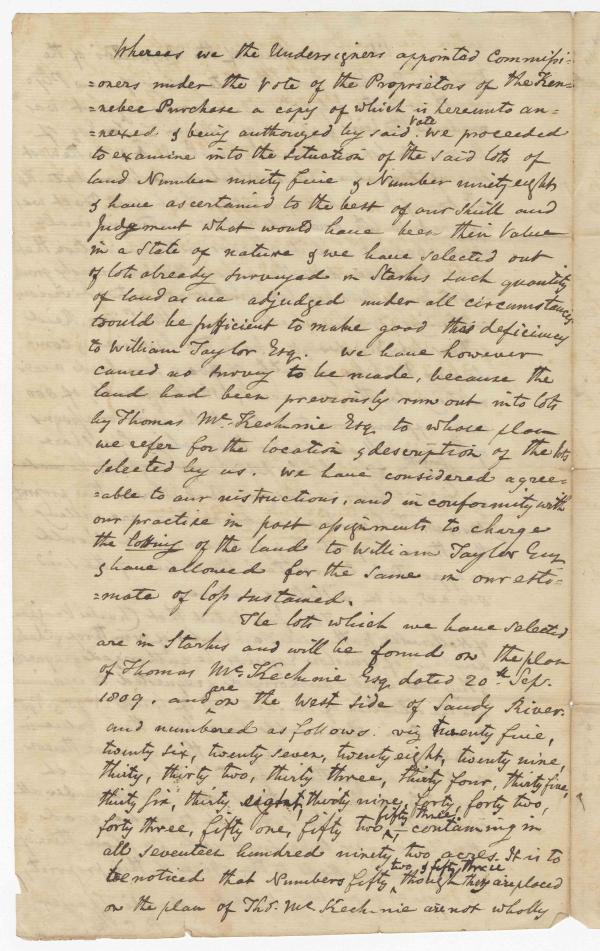 Whereas we the Undersigners appointed Commissi-
=oners under the Vote of the Proprietors of the Ken=
=nebec Purchase a copy of which is hereunto an=
=nexed. & being authorized by said Vote. we proceeded
to examine into the situation of the said lots of
land Number ninety five & Number ninety eight
& have ascertained to the best of our skill and
Judgement what would have been their Value
in a state of nature & we have selected out
of lots already surveyed in Starks such quantity
of land as we adjudged under all circumstances
would be sufficient to make good this deficiency
to William Taylor Esq. we have however
caused no survey to be made, because the
land had been previously run out into lots
by Thomas Mc. Kechinie Esq. to whose plan
we refer for the location & description of the lots
selected by us. we have considered agree=
=able to our instructions, and in conformity with
our practice in past assignments to charge
the lotting of the lands to William Taylor Esq
& have allowed for the same in our esti=
=mate of loss sustained.
The lots which we have selected
are in Starks and will be found on the plan
of Thomas Mc. Kechinie Esq. dated 20th Sep.
1809. and are on the West side of Sandy River.
and numbered as follows. viz twenty five,
twenty six, twenty seven, twenty eight, twenty nine,
thirty, thirty two, thirty three, thirty four, thirty five,
thirty six, thirty eight, thirty nine, forty, forty two,
forty three, fifty one, fifty two, fifty three - containing in
all seventeen hundred ninety two acres. It is to
be noticed that Numbers fifty two & fifty three though they are placed
on the plan of Tho. Mc Kechinie are not wholly